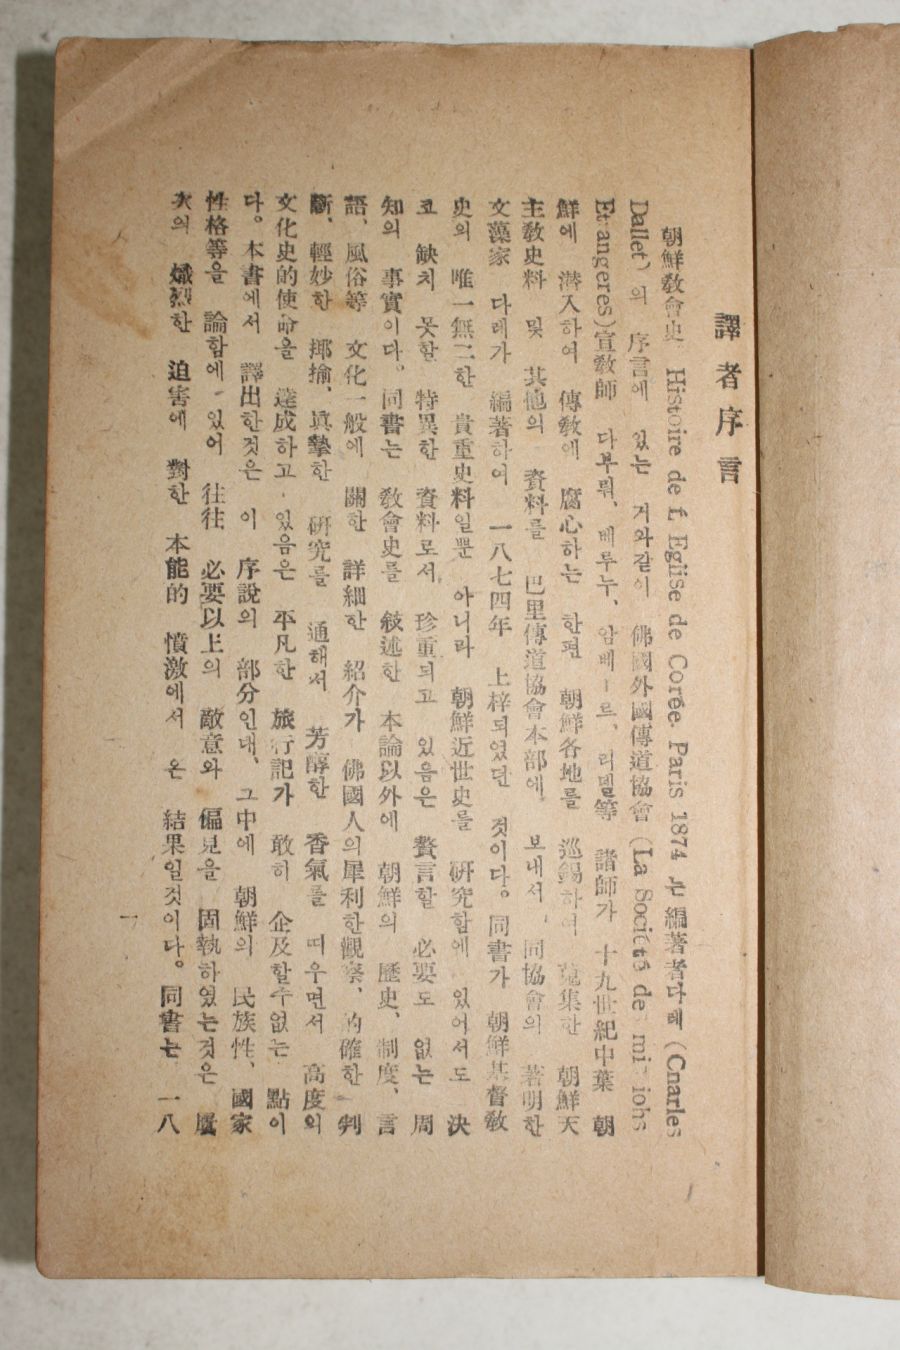 譯者序言
朝鮮敎會史 Histoire de L Eglise de Corée. Paris 1874 는 編著者다레 (Cnarles
Dallet) 의 序言에 있는 거와같이 佛國外國傳道協會 (La Société de missiohs
Etrangeres) 宣敎師 다부뤼, 베루누, 암베ー르, 리델等 諸師가 十九世紀中葉 朝
鮮에 潜入하여 傳敎에 腐心하는 한편 朝鮮各地를 巡錫하여 蒐集한 朝鮮天
主敎史料 및 其他의 資料를 巴里傳道協會本部에 보내서, 同協會의 著明한
文藻家 다레가 編著하여 一八七四年 上梓되였던 것이다。同書가 朝鮮基督敎
史의 唯一無二한 貴重史料일뿐 아니라 朝鮮近世史를 硏究함에 있어서도 決
코 缺치 못할 特異한 資料로서 珍重되고 있음은 贅言할 必要도 없는 周
知의 事實이다。同書는 敎會史를 敍述한 本論以外에 朝鮮의 歷史、制度、言
語、風俗等 文化一般에 關한 詳細한 紹介가 佛國人의犀利한觀察、的確한 判
斷、輕妙한 揶揄、眞摯한 硏究를 通해서 芳醇한 香氣를 띠우면서 高度의
文化史的使命을 達成하고 있음은 平凡한 旅行記가 敢히 企及할수없는 點이
다。本書에서 譯出한것은 이 序說의 部分인대、그中에 朝鮮의 民族性、國家
性格等을 論함에 있어 往往 必要以上의 敵意와 偏見을 固執하였는것은 屢
次의 熾烈한 迫害에 對한 本能的 憤激에서 온 結果일것이다。同書는 一八
一